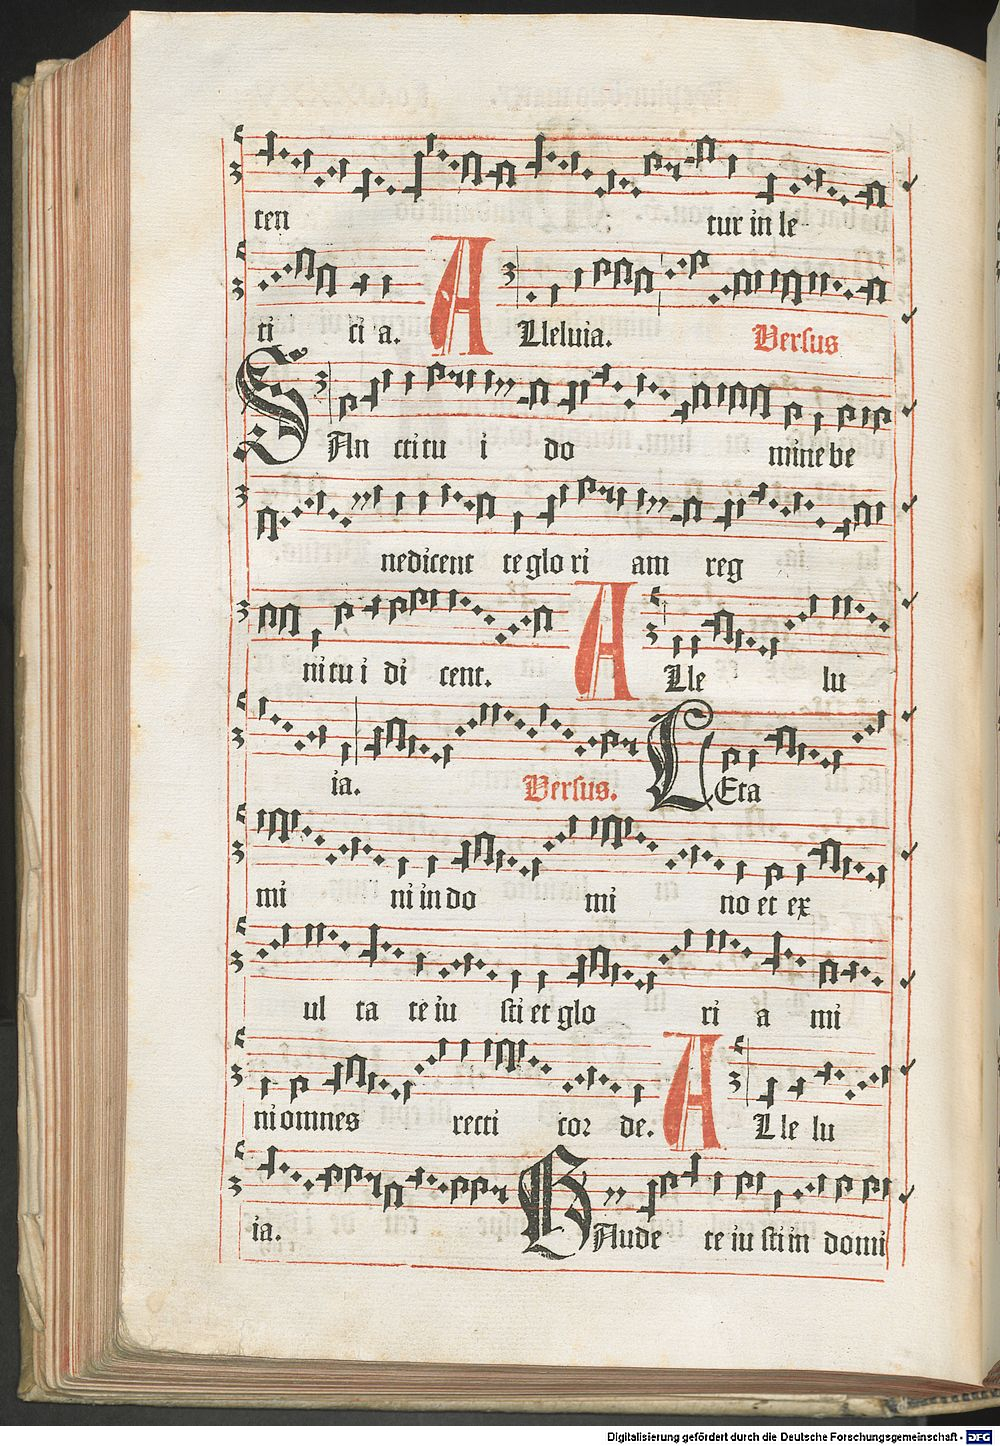 ten tur in le
ti ti a. ALleluia. Versus
SAn cti tu i do mine be
nedicent te glo ri am reg
ni tu i di cent. ALle lu
ia. Versus. LEta
mi ni in do mi no et ex
ul ta te iu sti et glo ri a mi
ni omnes recti cor de. ALle lu
ia. GAude te iu sti in domi
Digitalisierung gefördert durch die Deutsche Forschungsgemeinschaft - DFG